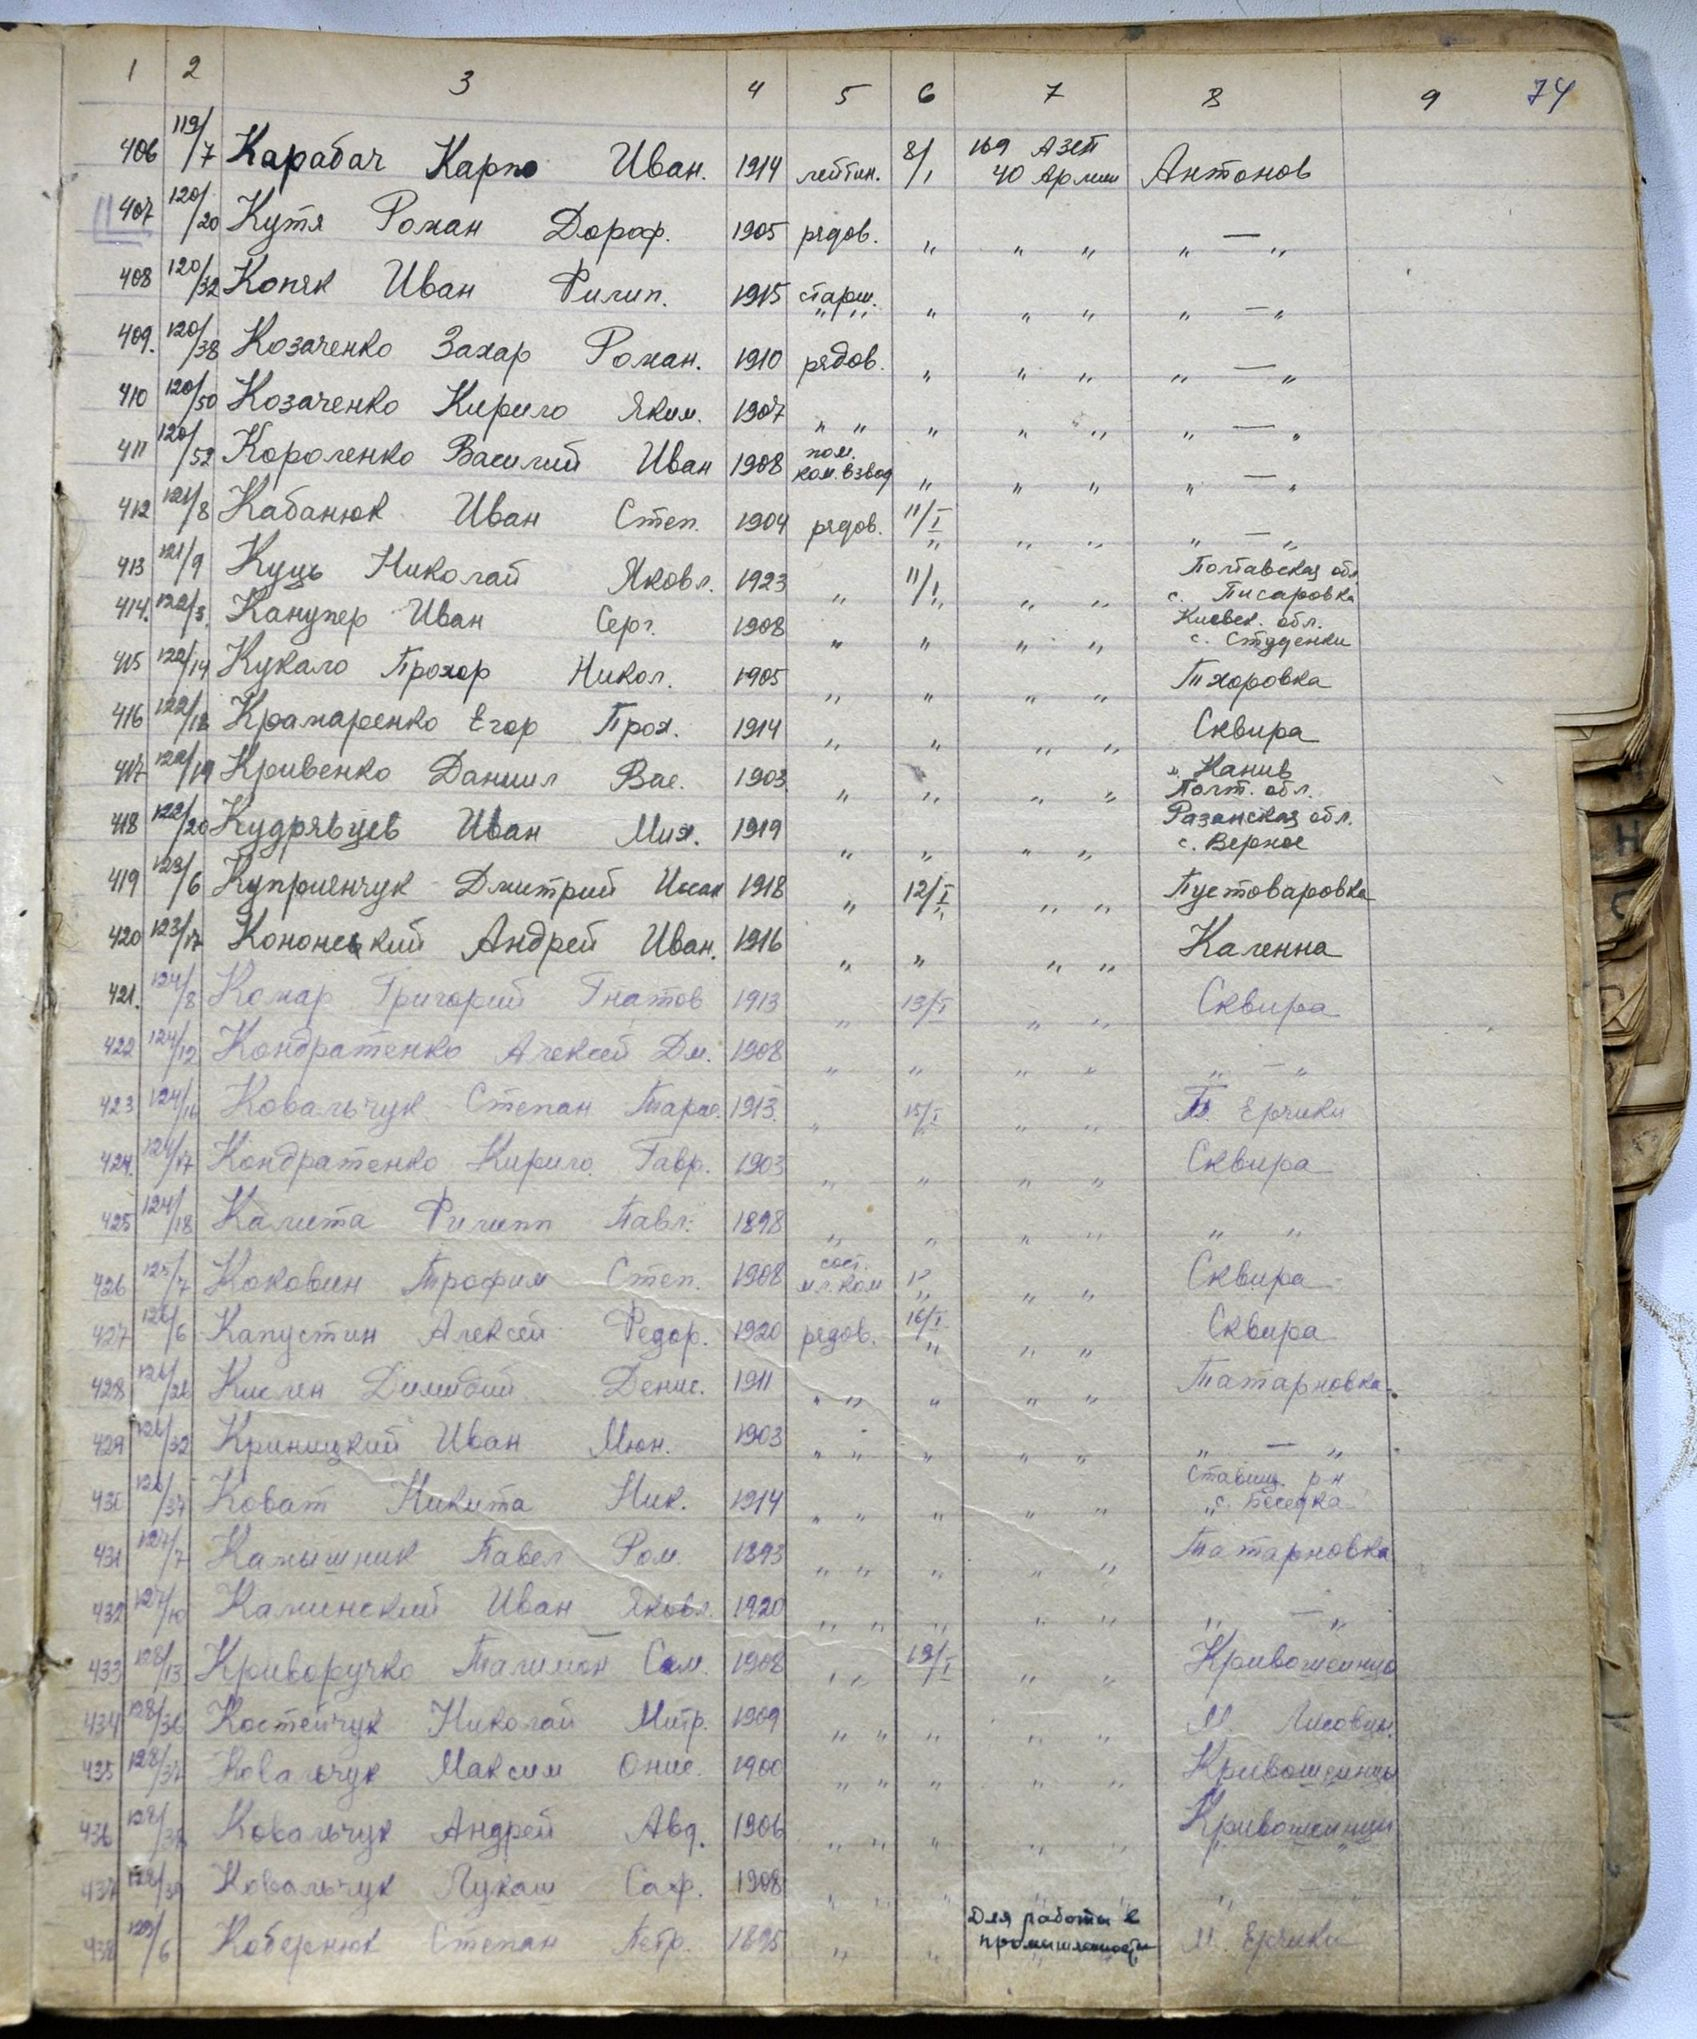 1 2 3 4 5 6 7 8 9 74
406 119/7 Карабач Карпо Иван. 1914 лейтин. 8/1 169 Азсп 40 Армии Антонов
407 120/20 Кутя Роман Дороф. 1905 рядов. „ „ „ „ — „
408 120/32 Копяк Иван Филип. 1915 старш. „ „ „ „ „ „ — „
409. 120/38 Козаченко Захар Роман. 1910 рядов. „ „ „ „ — „
410 120/50 Козаченко Кирило Яким. 1907 „ „ „ „ „ „ — „
411 120/52 Короленко Василий Иван 1908 пом. ком. взвод „ „ „ „ — „
412 121/8 Кабанюк Иван Степ. 1904 рядов. 11/I „ „ „ „ — „
413 121/9 Куць Николай Яковл. 1923 „ 11/I „ „ „ Полтавская обл. с. Писаровка
414. 122/3. Канупер Иван Серг. 1908 „ „ „ „ Киевск. обл. с. Студенки
415 122/14 Кукало Прохор Никол. 1905 „ „ „ „ Тхоровка
416 122/18 Крамаренко Егор Прох. 1914 „ „ „ „ Сквира
417 122/19 Кривенко Даниил Вас. 1903 „ „ „ „ м. Канив Полт. обл.
418 122/20 Кудрявцев Иван Мих. 1919 „ „ „ „ Разанская обл. с. Верное
419 123/6 Куприенчук Дмитрий Исак 1918 „ 12/I „ „ „ Пустоваровка
420 123/17 Кононський Андрей Иван. 1916 „ „ „ „ Каленна
421. 124/8 Комар Григорий Гнатов 1913 „ 13/I „ „ Сквира
422 124/12 Кондратенко Алексей Дм. 1908 „ „ „ „ „ — „
423 124/16 Ковальчук Степан Тарас. 1913. „ 15/I „ „ „ Ерчики
424. 124/17 Кондратенко Кирило Гавр. 1903 „ „ „ „ Сквира
425 124/18 Калита Филипп Павл. 1898 „ „ „ „ „ „
426 125/7 Коковин Трофим Степ. 1908 сост. мл. ком „ „ „ Сквира
427 126/6 Капустин Алексей Федор. 1920 рядов. 16/I „ „ „ Сквира
428 126/26 Кислен Денис. 1911 „ „ „ „ „ Татарновка.
429 126/32 Криницкий Иван Мюн. 1903 „ „ „ „ „ „ — „
430 126/37 Коват Никита Ник. 1914 „ „ „ „ „ Ставищ. р-н „с. Беседка
431 127/7 Камышник Павел Ром. 1893 „ „ „ „ „ Татарновка
432 127/10 Каминский Иван Яковл. 1920 „ „ „ „ „ „ — „
433 128/13 Криворучко Талимон Сам. 1908 „ „ 19/I „ „ Кривошеинцы
434 128/36 Костейчук Николай Митр. 1909 „ „ „ „ „ М. Лисовцы
435 128/37 Ковальчук Максим Онис. 1900 „ „ „ „ „ Кривошеинцы
436 128/38 Ковальчук Андрей Авд. 1906 „ „ „ „ „ Кривошеинцы
437 128/39 Ковальчук Лукаш Саф. 1908 „ „ „ „ „ „ „
438 129/6 Коберник Степан Петр. 1895 „ „ Для работы в промышленности М. Ерчики
Н
С